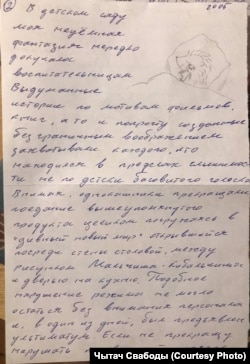 2
В детском саду
моя недюжая
фантазия нередко
докучала
воспитательницам
Выдуманные
истории по мотивам фильмов,
книг, а то и попросту созданные
безграничным воображением
захватывали каждого, кто
находился в пределах слышимос
ти не по детски басовитого голоска
однокашники прекращали
поедание вышеупомянутого
продукта целиком погружаясь в
"дивный новый мир" открывшийся
посреди столовой, между
рисунком
и дверью на кухню. Подобное
нарушение режима не могло
остаться без внимания персонала
и, в один из дней, был предъявлен
ультиматум. Если не прекращу
нарушать
Чытач Свабоды (Courtesy Photo)